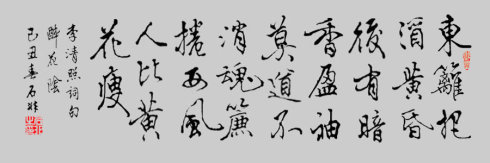 東籬把
酒黃昏
後有暗
香盈袖
莫道不
消魂簾
捲西風
人比黃
花瘦
李清照詞句
醉花陰
己丑春石非